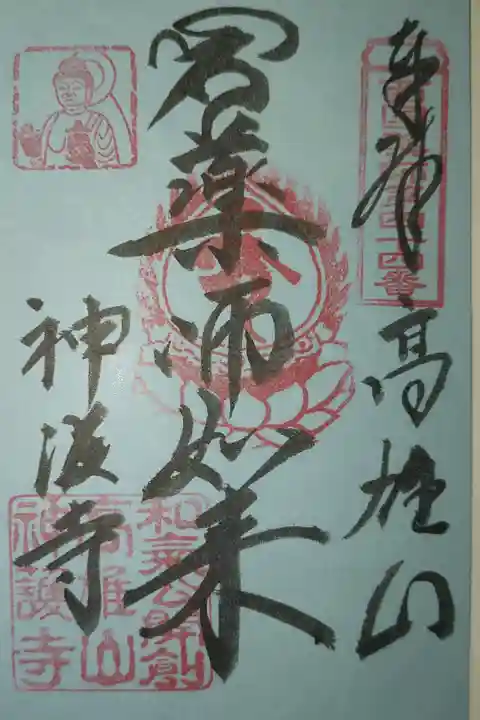 奉拝 高雄山
四十四番
薬師如来
神護寺
和氣公開創
高雄山
神護寺